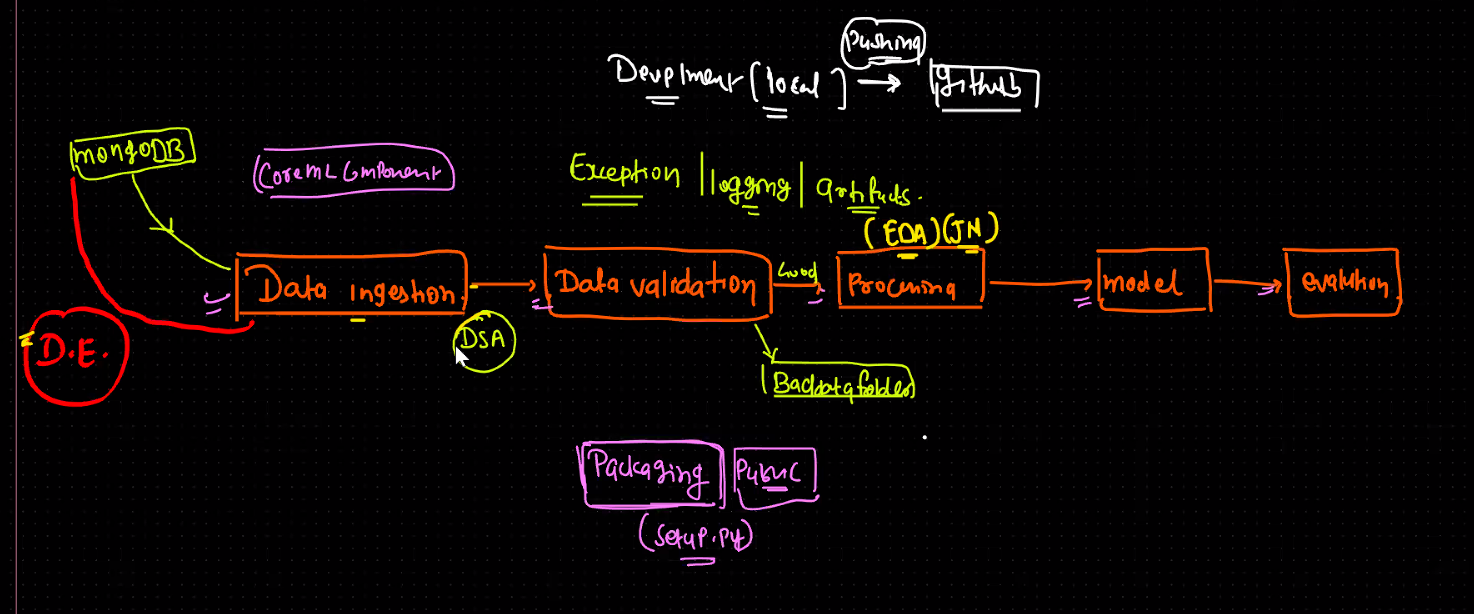 pushing
Devplment [local] → Github
mongoDB
Core ML Component
Exception | logging | artifacts.
(EDA) (JN)
Data ingestion → Data validation Good Processing → model → evalution
D.E.
DSA
Bad data folder
Packaging Public
(setup.py)